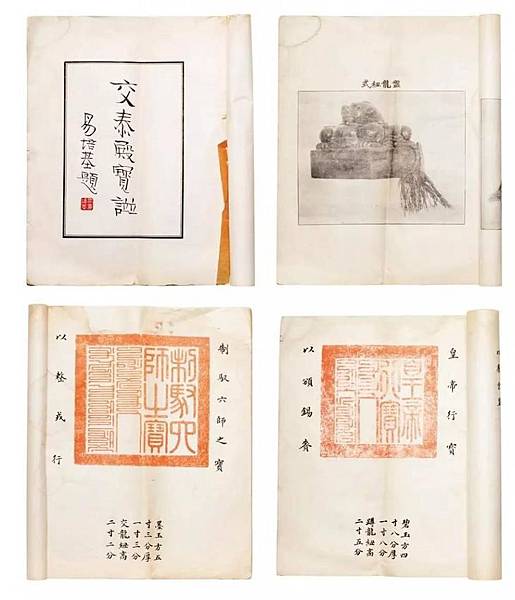 交泰殿寶譜
易培基題
盤龍紐式
制馭六師之寶
制馭六
師之寶
以整戎行
墨玉方五
寸三分厚
一寸三分
交龍紐高
二寸二分
皇帝行寶
皇帝
行寶
以頒錫賚
碧玉方四
寸八分厚
一寸八分
蹲龍紐高
二寸五分